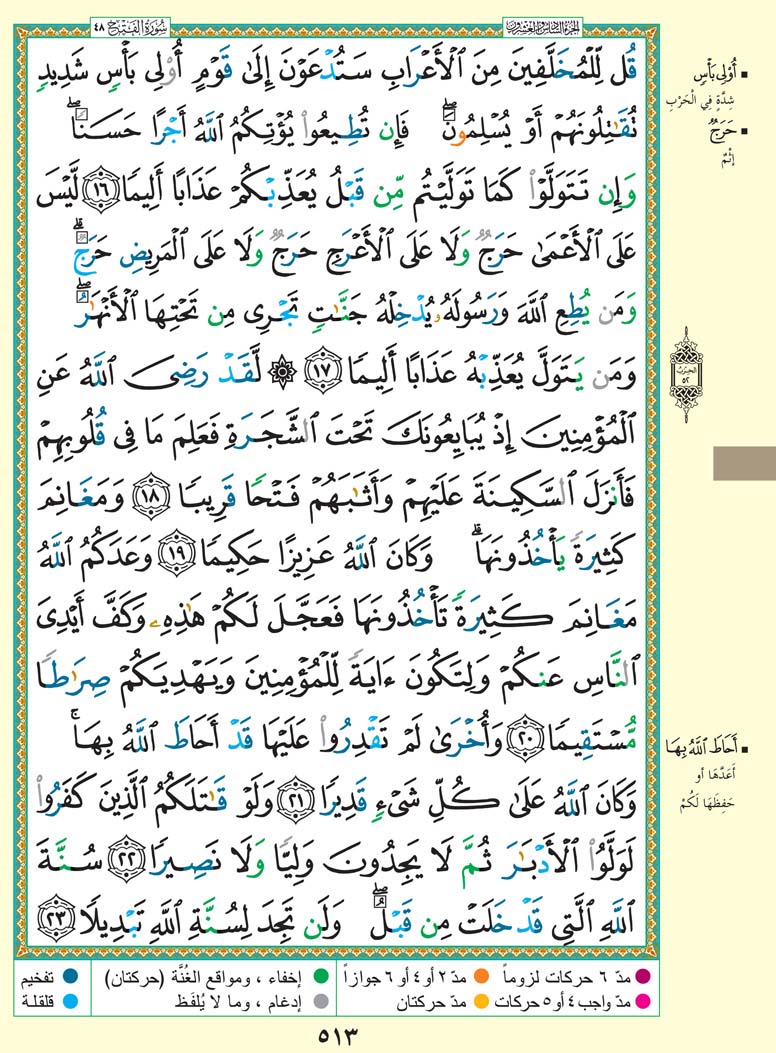 سُورَةُ الفَتْحِ ٤٨
الجزء السادس والعشرون
قُل لِّلْمُخَلَّفِينَ مِنَ ٱلْأَعْرَابِ سَتُدْعَوْنَ إِلَىٰ قَوْمٍ أُو۟لِى بَأْسٍ شَدِيدٍ
تُقَـٰتِلُونَهُمْ أَوْ يُسْلِمُونَ ۖ فَإِن تُطِيعُوا۟ يُؤْتِكُمُ ٱللَّهُ أَجْرًا حَسَنًا ۖ
وَإِن تَتَوَلَّوْا۟ كَمَا تَوَلَّيْتُم مِّن قَبْلُ يُعَذِّبْكُمْ عَذَابًا أَلِيمًا ١٦ لَّيْسَ
عَلَى ٱلْأَعْمَىٰ حَرَجٌ وَلَا عَلَى ٱلْأَعْرَجِ حَرَجٌ وَلَا عَلَى ٱلْمَرِيضِ حَرَجٌ ۗ
وَمَن يُطِعِ ٱللَّهَ وَرَسُولَهُۥ يُدْخِلْهُ جَنَّـٰتٍ تَجْرِى مِن تَحْتِهَا ٱلْأَنْهَـٰرُ ۖ
وَمَن يَتَوَلَّ يُعَذِّبْهُ عَذَابًا أَلِيمًا ١٧ ۞ لَّقَدْ رَضِىَ ٱللَّهُ عَنِ
ٱلْمُؤْمِنِينَ إِذْ يُبَايِعُونَكَ تَحْتَ ٱلشَّجَرَةِ فَعَلِمَ مَا فِى قُلُوبِهِمْ
فَأَنزَلَ ٱلسَّكِينَةَ عَلَيْهِمْ وَأَثَـٰبَهُمْ فَتْحًا قَرِيبًا ١٨ وَمَغَانِمَ
كَثِيرَةً يَأْخُذُونَهَا ۗ وَكَانَ ٱللَّهُ عَزِيزًا حَكِيمًا ١٩ وَعَدَكُمُ ٱللَّهُ
مَغَانِمَ كَثِيرَةً تَأْخُذُونَهَا فَعَجَّلَ لَكُمْ هَـٰذِهِۦ وَكَفَّ أَيْدِىَ
ٱلنَّاسِ عَنكُمْ وَلِتَكُونَ ءَايَةً لِّلْمُؤْمِنِينَ وَيَهْدِيَكُمْ صِرَٰطًا
مُّسْتَقِيمًا ٢٠ وَأُخْرَىٰ لَمْ تَقْدِرُوا۟ عَلَيْهَا قَدْ أَحَاطَ ٱللَّهُ بِهَا ۚ
وَكَانَ ٱللَّهُ عَلَىٰ كُلِّ شَىْءٍ قَدِيرًا ٢١ وَلَوْ قَـٰتَلَكُمُ ٱلَّذِينَ كَفَرُوا۟
لَوَلَّوُا۟ ٱلْأَدْبَـٰرَ ثُمَّ لَا يَجِدُونَ وَلِيًّا وَلَا نَصِيرًا ٢٢ سُنَّةَ
ٱللَّهِ ٱلَّتِى قَدْ خَلَتْ مِن قَبْلُ ۖ وَلَن تَجِدَ لِسُنَّةِ ٱللَّهِ تَبْدِيلًا ٢٣
▪ أُو۟لِى بَأْسٍ
شِدَّةٍ فِي الْحَرْبِ
▪ حَرَجٌ
إِثْمٌ
الحزب
٥٢
▪ أَحَاطَ ٱللَّهُ بِهَا
أَعَدَّهَا أو
حَفِظَهَا لَكُمْ
مدّ ٦ حركات لزوماً
مدّ ٢ أو ٤ أو ٦ جوازاً
إخفاء ، ومواقع الغُنَّة (حركتان)
تفخيم
مدّ واجب ٤ أو ٥ حركات
مدّ حركتان
إدغام ، وما لا يُلفَظ
قلقلة
٥١٣